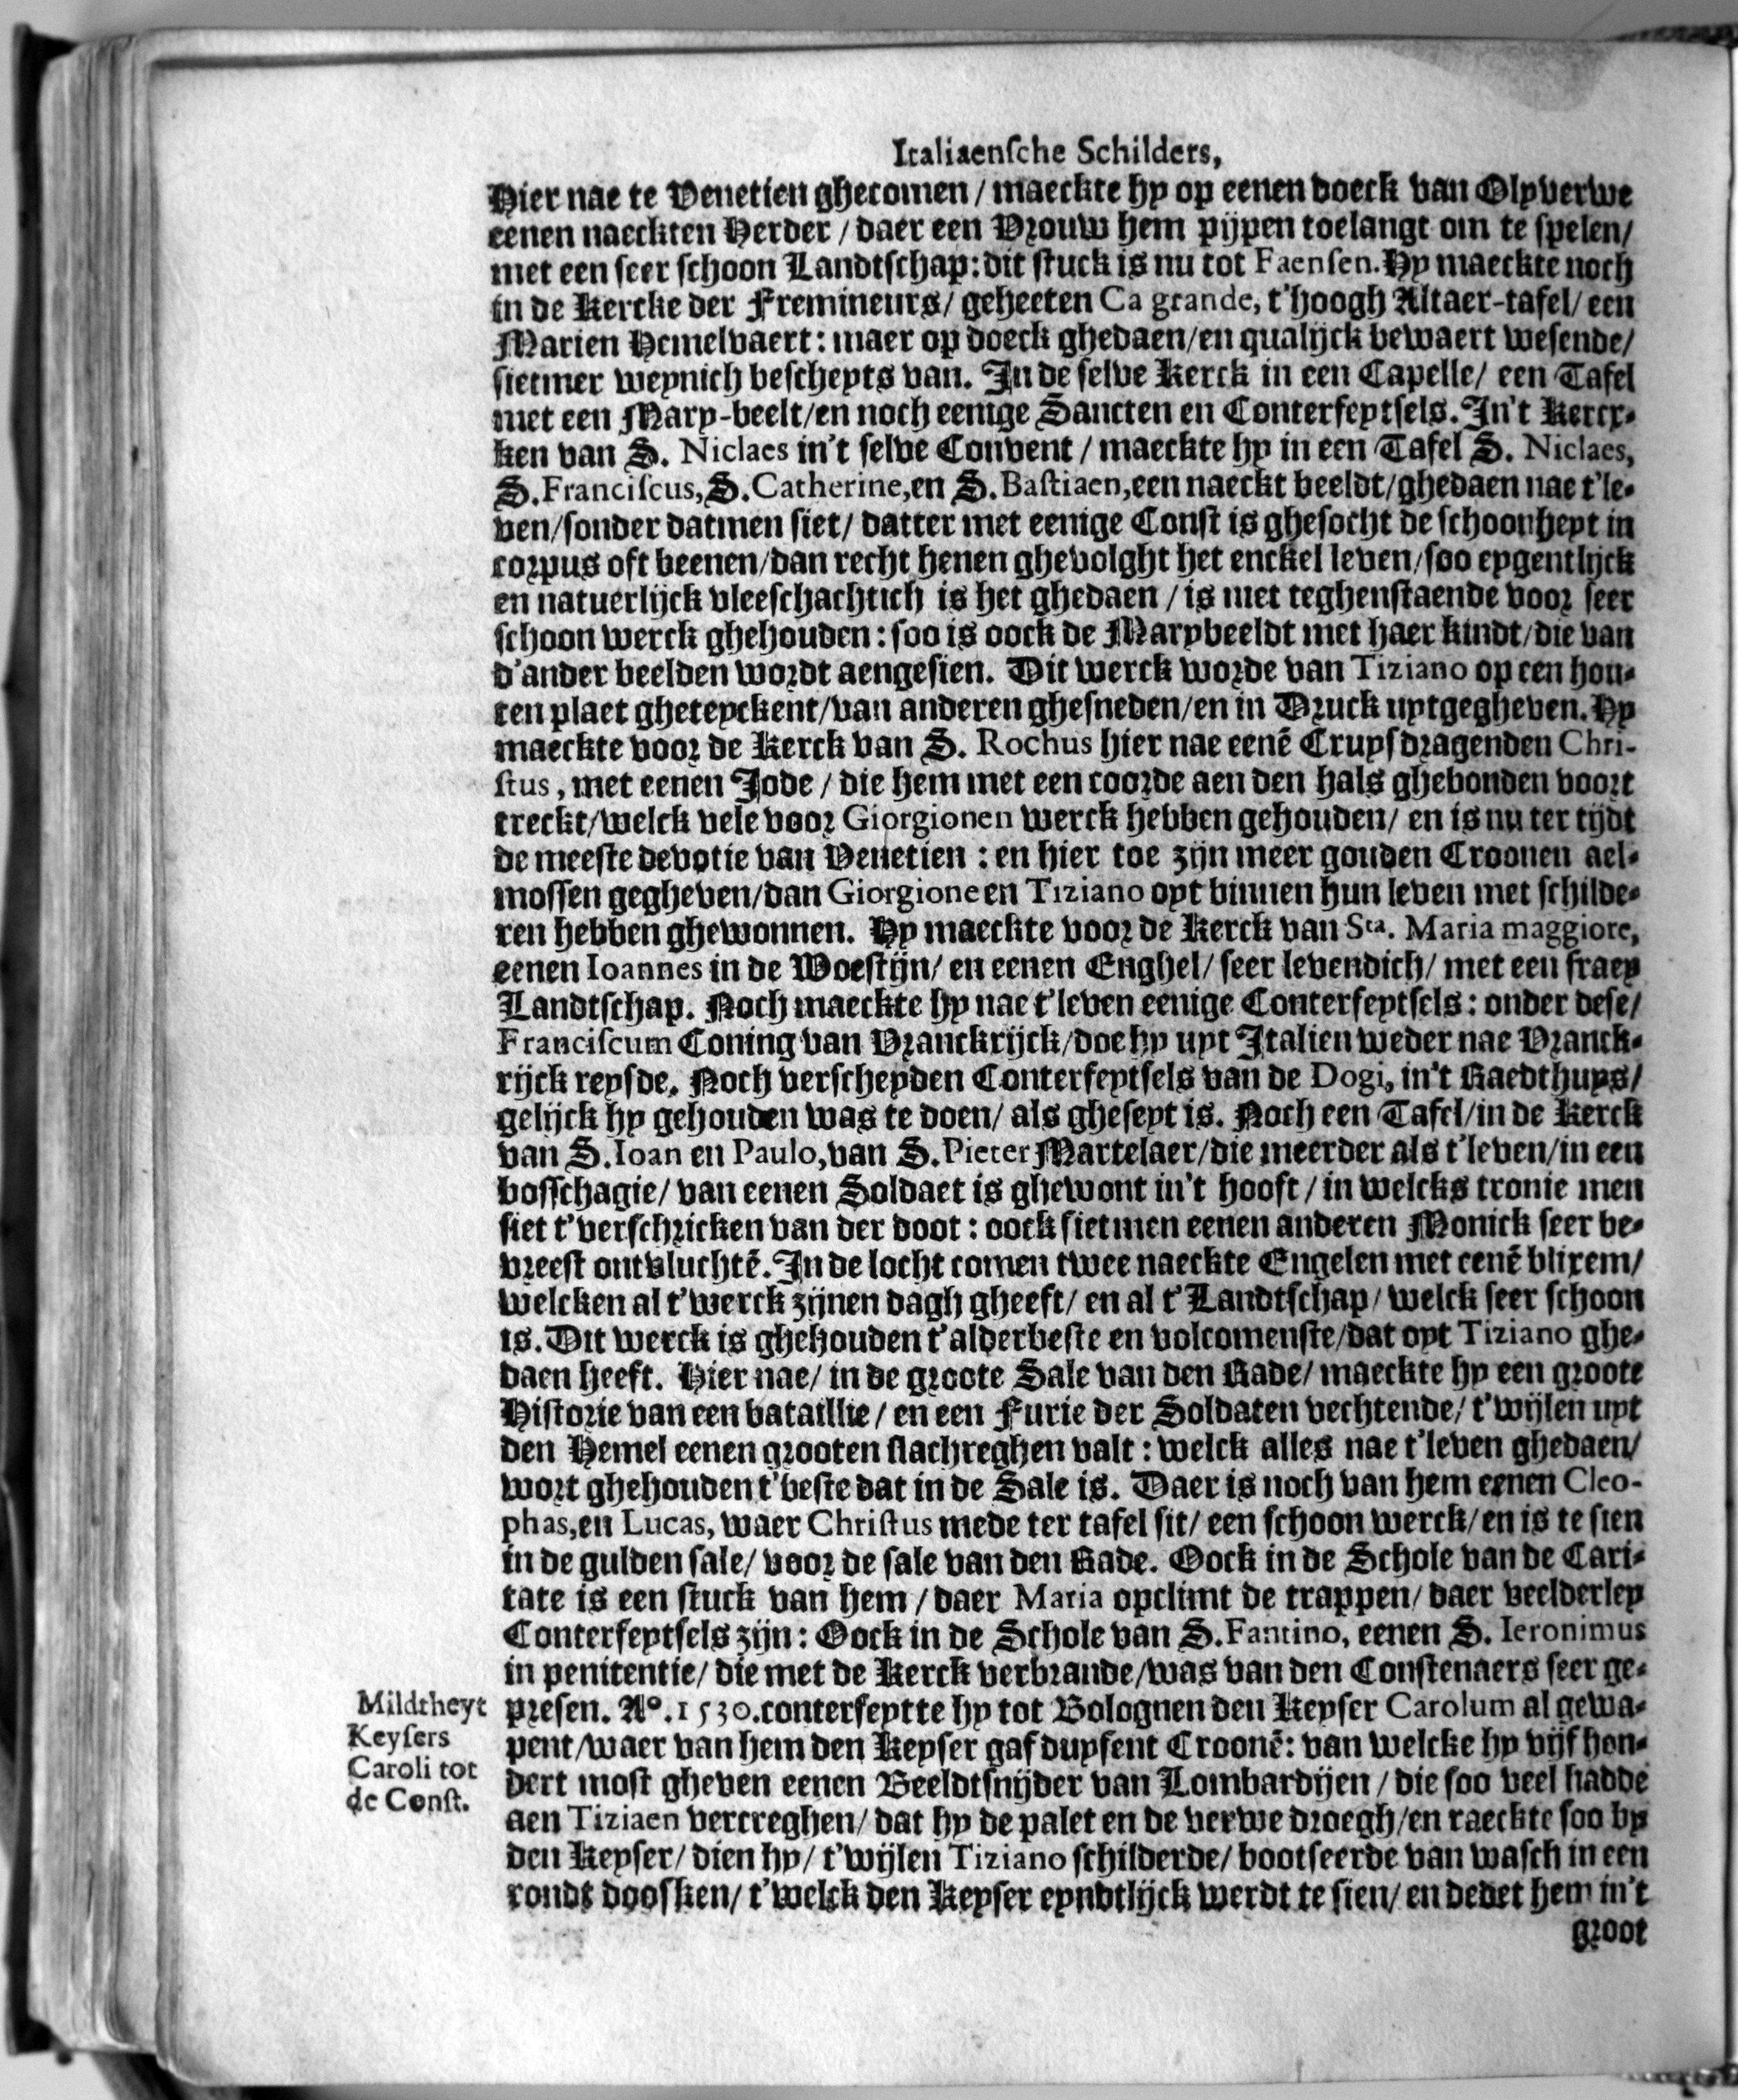 Italiaensche Schilders,
Hier nae te Venetien ghecomen / maeckte hy op eenen doeck van Olyverwe
eenen naeckten Herder / daer een Vrouw hem pijpen toelangt om te spelen/
met een seer schoon Landtschap: dit stuck is nu tot Faensen. Hy maeckte noch
in de Kercke der Fremineurs/ geheeten Ca grande, t'hoogh Altaer-tafel/ een
Marien Hemelvaert: maer op doeck ghedaen/en qualijck bewaert wesende/
sietmer weynich bescheyts van. In de selve Kerck in een Capelle/ een Tafel
met een Mary-beelt/en noch eenige Sancten en Conterfeytsels. In't Kercx-
ken van S. Niclaes in't selve Convent / maeckte hy in een Tafel S. Niclaes,
S. Franciscus, S. Catherine, en S. Bastiaen, een naeckt beeldt/ghedaen nae t'le-
ven/sonder datmen siet/ datter met eenige Const is ghesocht de schoonheyt in
corpus oft beenen/dan recht henen ghevolght het enckel leven/soo eygentlijck
en natuerlijck vleeschachtich is het ghedaen / is niet teghenstaende voor seer
schoon werck ghehouden: soo is oock de Marybeeldt met haer kindt/die van
d'ander beelden wordt aengesien. Dit werck worde van Tiziano op een hou-
ten plaet gheteyckent/van anderen ghesneden/en in Druck uytgegheven. Hy
maeckte voor de Kerck van S. Rochus hier nae eenē Cruysdragenden Chri-
stus, met eenen Jode / die hem met een coorde aen den hals ghebonden voort
treckt/welck vele voor Giorgionen werck hebben gehouden/ en is nu ter tijdt
de meeste devotie van Venetien: en hier toe zijn meer gouden Croonen ael-
mossen gegheven/dan Giorgione en Tiziano oyt binnen hun leven met schilde-
ren hebben ghewonnen. Hy maeckte voor de Kerck van Sta. Maria maggiore,
eenen Ioannes in de Woestijn/ en eenen Enghel/ seer levendich/ met een fraey
Landtschap. Noch maeckte hy nae t'leven eenige Conterfeytsels: onder dese/
Franciscum Coning van Vranckrijck/doe hy uyt Italien weder nae Vranck-
rijck reysde. Noch verscheyden Conterfeytsels van de Dogi, in't Raedthuys/
gelijck hy gehouden was te doen/ als gheseyt is. Noch een Tafel/in de Kerck
van S. Ioan en Paulo, van S. Pieter Martelaer/die meerder als t'leven/in een
bosschagie/ van eenen Soldaet is ghewont in't hooft / in welcks tronie men
siet t'verschricken van der doot: oock sietmen eenen anderen Monick seer be-
vreest ontvluchtē. In de locht comen twee naeckte Engelen met eenē blixem/
welcken al t'werck zijnen dagh gheeft/ en al t'Landtschap/ welck seer schoon
is. Dit werck is ghehouden t'alderbeste en volcomenste/dat oyt Tiziano ghe-
daen heeft. Hier nae/ in de groote Sale van den Rade/ maeckte hy een groote
Historie van een bataillie / en een Furie der Soldaten vechtende/ t'wijlen uyt
den Hemel eenen grooten slachreghen valt: welck alles nae t'leven ghedaen/
wort ghehouden t'beste dat in de Sale is. Daer is noch van hem eenen Cleo-
phas, en Lucas, waer Christus mede ter tafel sit/ een schoon werck/ en is te sien
in de gulden sale/ voor de sale van den Rade. Oock in de Schole van de Cari-
tate is een stuck van hem / daer Maria opclimt de trappen/ daer veelderley
Conterfeytsels zijn: Oock in de Schole van S. Fantino, eenen S. Ieronimus
in penitentie/ die met de Kerck verbrande/was van den Constenaers seer ge-
presen. Ao. 1530. conterfeytte hy tot Bolognen den Keyser Carolum al gewa-
pent/waer van hem den Keyser gaf duysent Croonē: van welcke hy vijf hon-
dert most gheven eenen Beeldtsnijder van Lombardijen / die soo veel hadde
aen Tiziaen vercreghen/ dat hy de palet en de verwe droegh/en raeckte soo by
den Keyser/ dien hy/ t'wijlen Tiziano schilderde/ bootseerde van wasch in een
rondt doosken/ t'welck den Keyser eyndtlijck werdt te sien/ en dedet hem in't
groot
Mildtheyt
Keysers
Caroli tot
de Const.